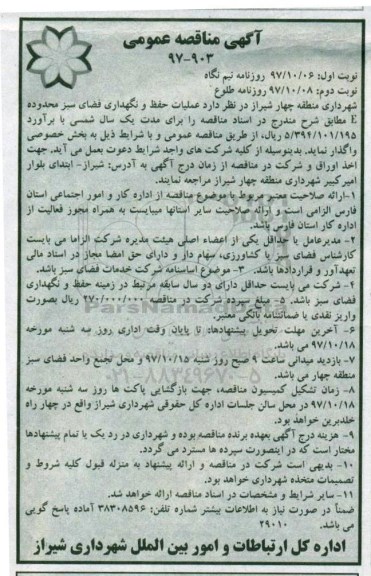 آگهی مناقصه عمومی
۹۷-۹۰۳
نوبت اول: ۹۷/۱۰/۰۶ روزنامه نیم نگاه
نوبت دوم: ۹۷/۱۰/۰۸ روزنامه طلوع
شهرداری منطقه چهار شیراز در نظر دارد عملیات حفظ و نگهداری فضای سبز محدوده
E مطابق شرح مندرج در اسناد مناقصه را برای مدت یک سال شمسی با برآورد
۵/۳۹۴/۱۰۱/۱۹۵ ریال، از طریق مناقصه عمومی و با شرایط ذیل به بخش خصوصی
واگذار نماید. بدینوسیله از کلیه شرکت های واجد شرایط دعوت بعمل می آید. جهت
اخذ اوراق و شرکت در مناقصه از زمان درج آگهی به آدرس: شیراز- ابتدای بلوار
امیر کبیر شهرداری منطقه چهار شیراز مراجعه نمایند.
۱-ارائه صلاحیت مرتبط با موضوع مناقصه از اداره کار و امور اجتماعی استان
فارس الزامی است و ارائه صلاحیت سایر استانها میبایست به همراه مجوز فعالیت از
اداره کار استان فارس باشد.
۲- مدیرعامل یا حداقل یکی از اعضاء اصلی هیئت مدیره شرکت الزاما می بایست
کارشناس فضای سبز یا کشاورزی، سهام دار و دارای حق امضا مجاز در اسناد مالی
تعهدآور و قراردادها باشد. ۳- موضوع اساسنامه شرکت خدمات فضای سبز باشد.
۴- شرکت می بایست حداقل دارای دو سال سابقه مرتبط در زمینه حفظ و نگهداری
فضای سبز باشد. ۵- مبلغ سپرده شرکت در مناقصه ۲۷۰/۰۰۰/۰۰۰ ریال بصورت
واریز نقدی یا ضمانتنامه بانکی معتبر.
۶- آخرین مهلت تحویل پیشنهادها: تا پایان وقت اداری روز سه شنبه مورخه
۹۷/۱۰/۱۸ می باشد.
۷- بازدید میدانی ساعت ۹ صبح روز شنبه ۹۷/۱۰/۱۵ و محل تجمع واحد فضای سبز
منطقه چهار می باشد.
۸- زمان تشکیل کمیسیون مناقصه، جهت بازگشایی پاکت ها روز سه شنبه مورخه
۹۷/۱۰/۱۸ در محل سالن جلسات اداره کل حقوقی شهرداری شیراز واقع در چهار راه
خلدبرین خواهد بود.
۹- هزینه درج آگهی بعهده برنده مناقصه بوده و شهرداری در رد یک یا تمام پیشنهادها
مختار است که در اینصورت سپرده ها مسترد می گردد.
۱۰- بدیهی است شرکت در مناقصه و ارائه پیشنهاد به منزله قبول کلیه شروط و
تصمیمات متخذه شهرداری خواهد بود.
۱۱- سایر شرایط و مشخصات در اسناد مناقصه ارائه خواهد شد.
ضمناً در صورت نیاز به اطلاعات بیشتر شماره تلفن: ۳۸۳۰۸۵۹۶ آماده پاسخ گویی
می باشد. ۲۹۰۱۰
اداره کل ارتباطات و امور بین الملل شهرداری شیراز